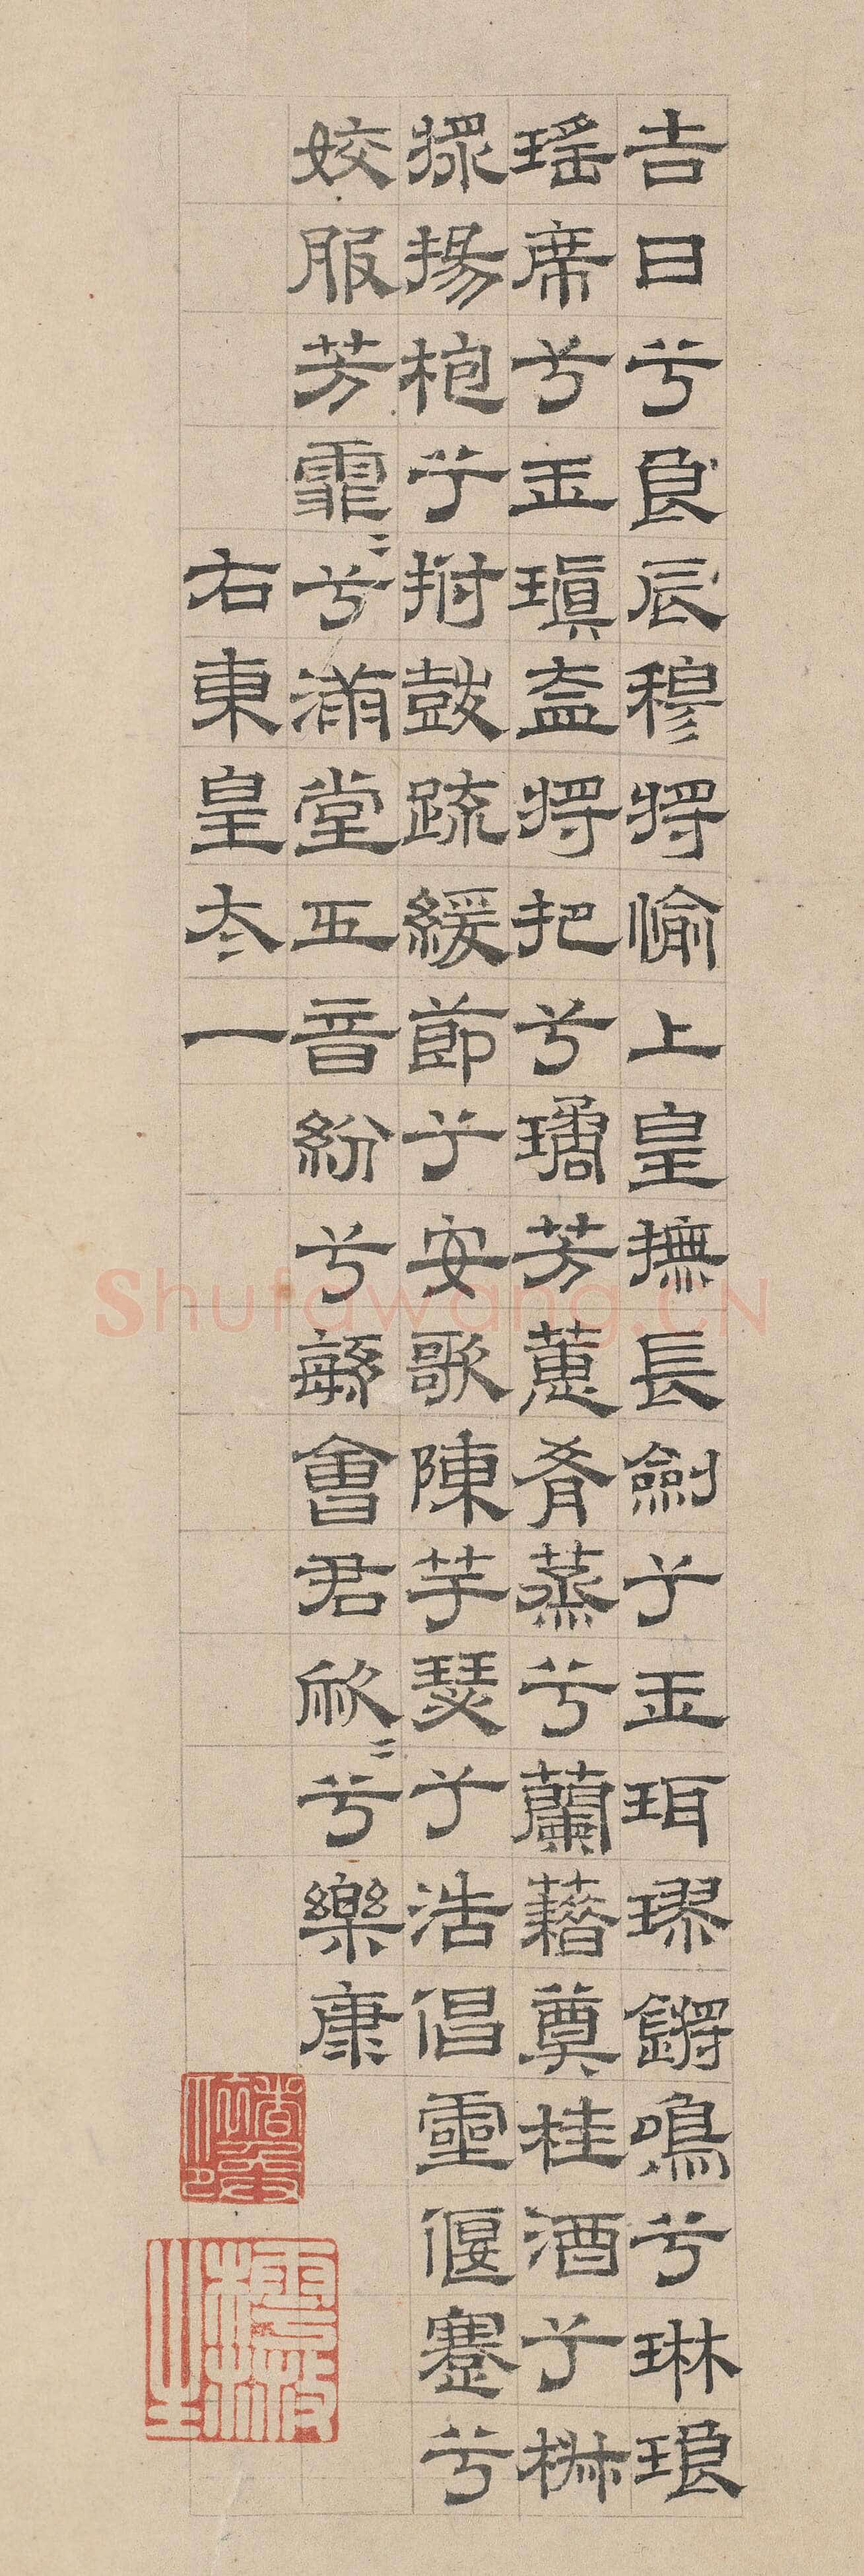 吉日兮良辰穆將愉上皇撫長劍兮玉珥璆鏘鳴兮琳琅
瑤席兮玉瑱盍將把兮璚芳蕙肴蒸兮蘭藉奠桂酒兮椒
漿揚枹兮拊鼓疏緩節兮安歌陳芋瑟兮浩倡靈偃蹇兮
姣服芳霏〻兮滿堂五音紛兮繁會君欣〻兮樂康
右東皇太一
Shufawang.CN